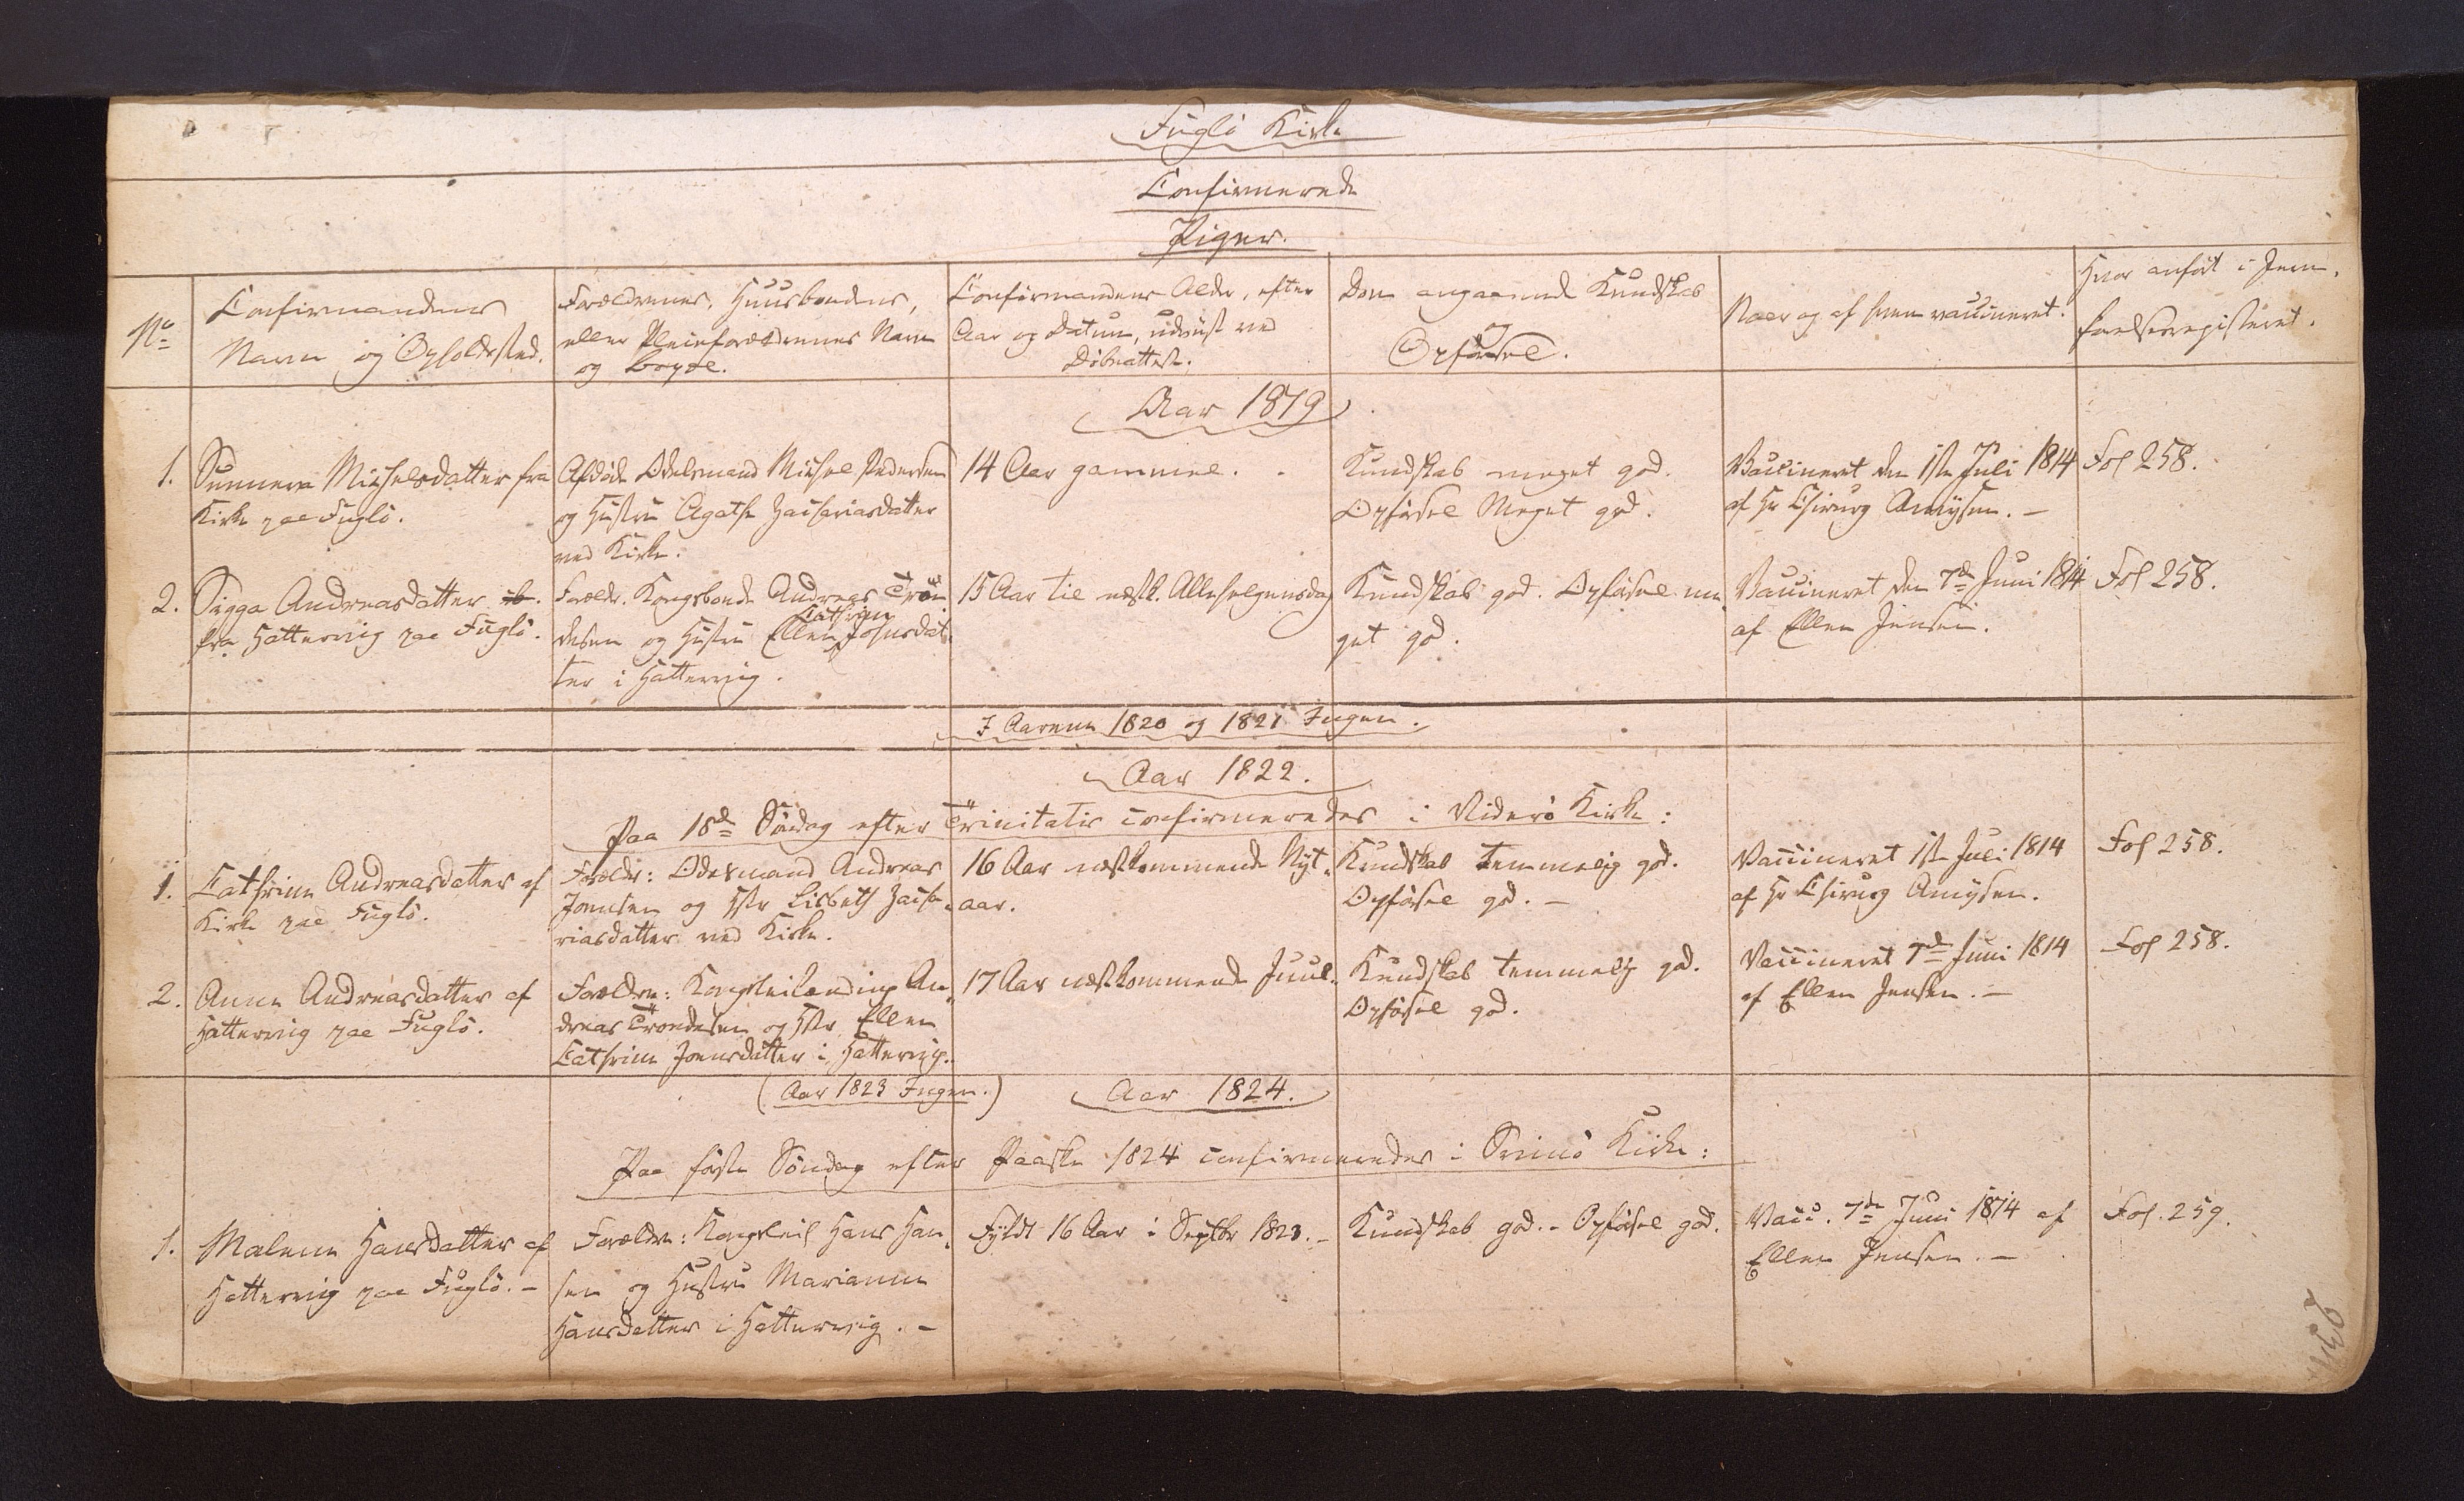 Fuglö Kirke
Confirmerede
Piger.
No
Confirmandens
Navn og Opholdssted.
Forældrenes, Huusbondens,
eller Pleieforældrenes Navn
og Boepæl.
Confirmandens Alder, efter
Aar og Datum, udviist ved
Döbeattest.
Dom angaaende Kundskab
og
Opförsel.
Naar og af hvem vaccineret.
Hvor anfört i Jevn-
förelsesregisteret.
Aar 1819
1. Sunneva Michelsdatter fra
Kirke paa Fuglö.
Afdöde Odelsmand Michel Pedersen
og Hustru Agathe Zachariasdatter
ved Kirke.
14 Aar gammel.
Kundskab meget god.
Opförsel Meget god.
Vaccineret den 1ste Juli 1814
af Hr Chirurg Amÿsen. –
Fol 258.
2. Sigga Andreasdatter
fra Hattervig paa Fuglö.
Forældr. Kongsbonde Andreas Trön
desen og Hustru Ellen Cathrine Johnsdat
ter i Hattervig.
15 Aar til næstk. Allehelgensdag
Kundskab god. Opförsel me
get god.
Vaccineret den 7de Juni 1814
af Ellen Jensen.
Fol 258.
I Aarene 1820 og 1821 Ingen.
Aar 1822.
Paa 18de Söndag efter Trinitatis confirmeredes i Viderö Kirke:
1. Cathrine Andreasdatter af
Kirke paa Fuglö.
Forældr: Odelsmand Andreas
Joensen og Hstr Lisbeth Zacha-
riasdatter ved Kirke.
16 Aar næstkommende Nyt-
aar.
Kundskab temmelig god.
Opförsel god. –
Vaccineret 1ste Juli 1814
af Hr Chirurg Amÿsen.
Fol 258.
2. Anne Andreasdatter af
Hattervig paa Fuglö.
Forældre: Kongsleilænding An-
dreas Tröndesen og Hstr Ellen
Cathrine Joensdatter i Hattervig.
17 Aar næstkommende Juul.
Kundskab temmelig god.
Opförsel god.
Vaccineret 7de Juni 1814
af Ellen Jensen. –
Fol 258.
(Aar 1823 Ingen.)
Aar 1824.
Paa förste Söndag efter Paaske 1824 confirmeredes i Svinö Kirke:
1. Malene Hansdatter af
Hattervig paa Fuglö. –
Forældre: Kongsleil Hans Han-
sen og Hustru Marianne
Hansdatter i Hattervig. –
Fyldt 16 Aar i Septbr 1823. –
Kundskab god. – Opförsel god.
Vacc. 7de Juni 1814 af
Ellen Jensen. –
Fol. 259.